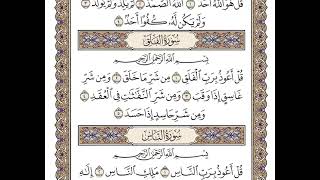 قُلْ هُوَ اللَّهُ أَحَدٌ ۝ اللَّهُ الصَّمَدُ ۝ لَمْ يَلِدْ وَلَمْ يُولَدْ ۝
وَلَمْ يَكُن لَّهُ كُفُوًا أَحَدٌ ۝
سُورَةُ الْفَلَقِ
بِسْمِ اللَّهِ الرَّحْمَٰنِ الرَّحِيمِ
قُلْ أَعُوذُ بِرَبِّ الْفَلَقِ ۝ مِن شَرِّ مَا خَلَقَ ۝ وَمِن شَرِّ
غَاسِقٍ إِذَا وَقَبَ ۝ وَمِن شَرِّ النَّفَّاثَاتِ فِي الْعُقَدِ ۝
وَمِن شَرِّ حَاسِدٍ إِذَا حَسَدَ ۝
سُورَةُ النَّاسِ
بِسْمِ اللَّهِ الرَّحْمَٰنِ الرَّحِيمِ
قُلْ أَعُوذُ بِرَبِّ النَّاسِ ۝ مَلِكِ النَّاسِ ۝ إِلَٰهِ